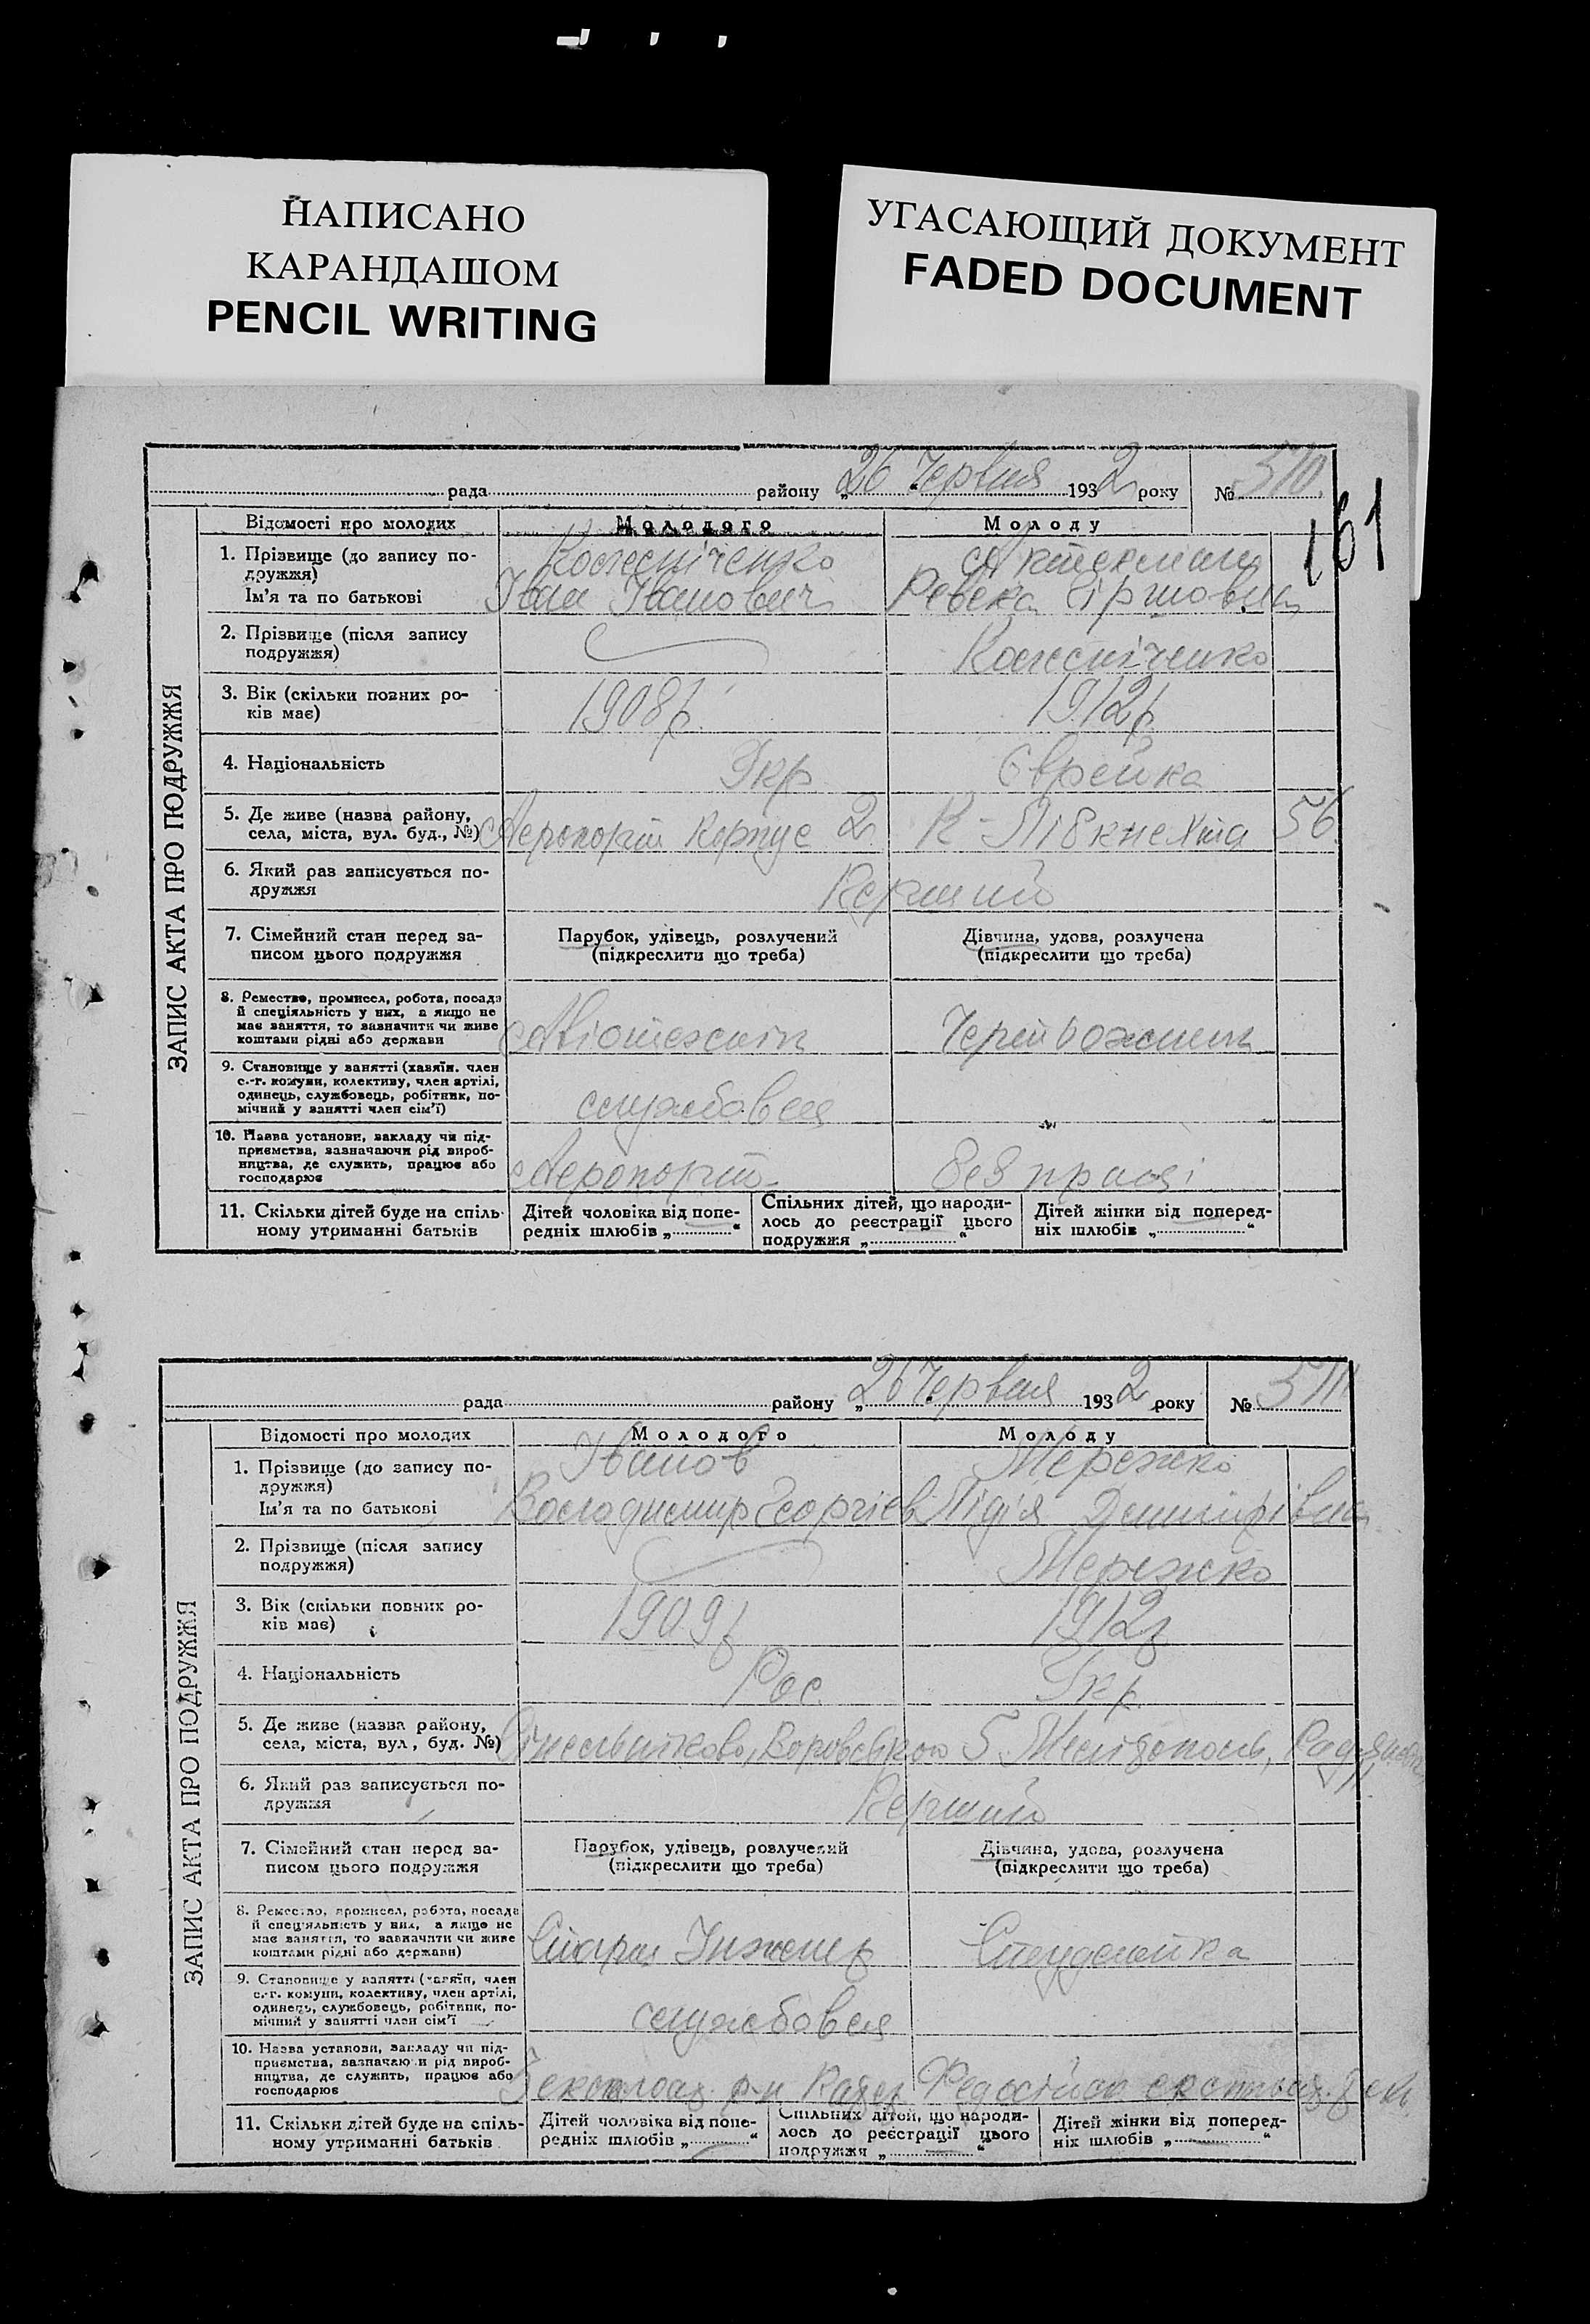 НАПИСАНО
КАРАНДАШОМ
PENCIL WRITING
УГАСАЮЩИЙ ДОКУМЕНТ
FADED DOCUMENT
161
ЗАПИС АКТА ПРО ПОДРУЖЖЯ
рада району „26 Червня 1932 року № 570
Відомості про молодих Молодого Молоду
1. Прізвище (до запису подружжя)
Ім'я та по батькові
Іван Іванович Ревека Гіршовна
2. Прізвище (після запису
подружжя)
3. Вік (скільки повних ро-
ків має) 1908р. 1912р
4. Національність Укр Єврейка
5. Де живе (назва району,
села, міста, вул. буд., №) Аеропорт Корпус 2 К-Лібкнехта 56
6. Який раз записується по-
дружжя Перший
7. Сімейний стан перед за-
писом цього подружжя
Парубок, удівець, розлучений
(підкреслити що треба)
Дівчина, удова, розлучена
(підкреслити що треба)
8. Ремество, промисел, робота, посада
й спеціяльність у них, а якщо не
має заняття, то зазначити чи живе
коштами рідні або держави
Авіотехнік Чертьожниця
9. Становище у занятті (хазяїн. член
с.-г. комуни, колективу, член артілі,
одинець, службовець, робітник, по-
мічний у занятті член сім'ї)
службовец
10. Назва установи, закладу чи під-
приємства, зазначаючи рід вироб-
ництва, де служить, працює або
господарює
Аеропорт Без праці
11. Скільки дітей буде на спіль-
ному утриманні батьків
Дітей чоловіка від попе-
редніх шлюбів „ “
Спільних дітей, що народи-
лось до реєстрації цього
подружжя „ “
Дітей жінки від поперед-
ніх шлюбів „ “
ЗАПИС АКТА ПРО ПОДРУЖЖЯ
рада району „26 Червня 1932 року № 571
Відомості про молодих Молодого Молоду
1. Прізвище (до запису по-
дружжя) Іванов Мережко
Ім'я та по батькові Володимир Георгієв Лідія Дмитрівна
2. Прізвище (після запису
подружжя) Мережко
3. Вік (скільки повних ро-
ків має) 1909р 1912р
4. Національність Рос Укр
5. Де живе (назва району,
села, міста, вул, буд. №) Сінельніково, Воровського 5 Мелітополь,
6. Який раз записується по-
дружжя Перший
7. Сімейний стан перед за-
писом цього подружжя
Парубок, удівець, розлучений
(підкреслити що треба)
Дівчина, удова, розлучена
(підкреслити що треба)
8. Ремество, промисел, робота, посада
й спец'яльність у них, а якщо не
має заняття, то зазначити чи живе
коштами рідні або держави)
Старш Інженер Студентка
9. Становище у занятті (хазяїн, член
с.-г. комуни, колективу, член артілі,
одинець, службовець, робітник, по-
мічний у занятті член сім'ї
службовец
10. Назва установи, закладу чи під-
приємства, зазначаючи рід вироб-
ництва, де служить, працює або
господарює
11. Скільки дітей буде на спіль-
ному утриманні батьків
Дітей чоловіка від попе-
редніх шлюбів „ “
Спільних дітей, що народи-
лось до реєстрації цього
подружжя „ “
Дітей жінки від поперед-
ніх шлюбів „ “